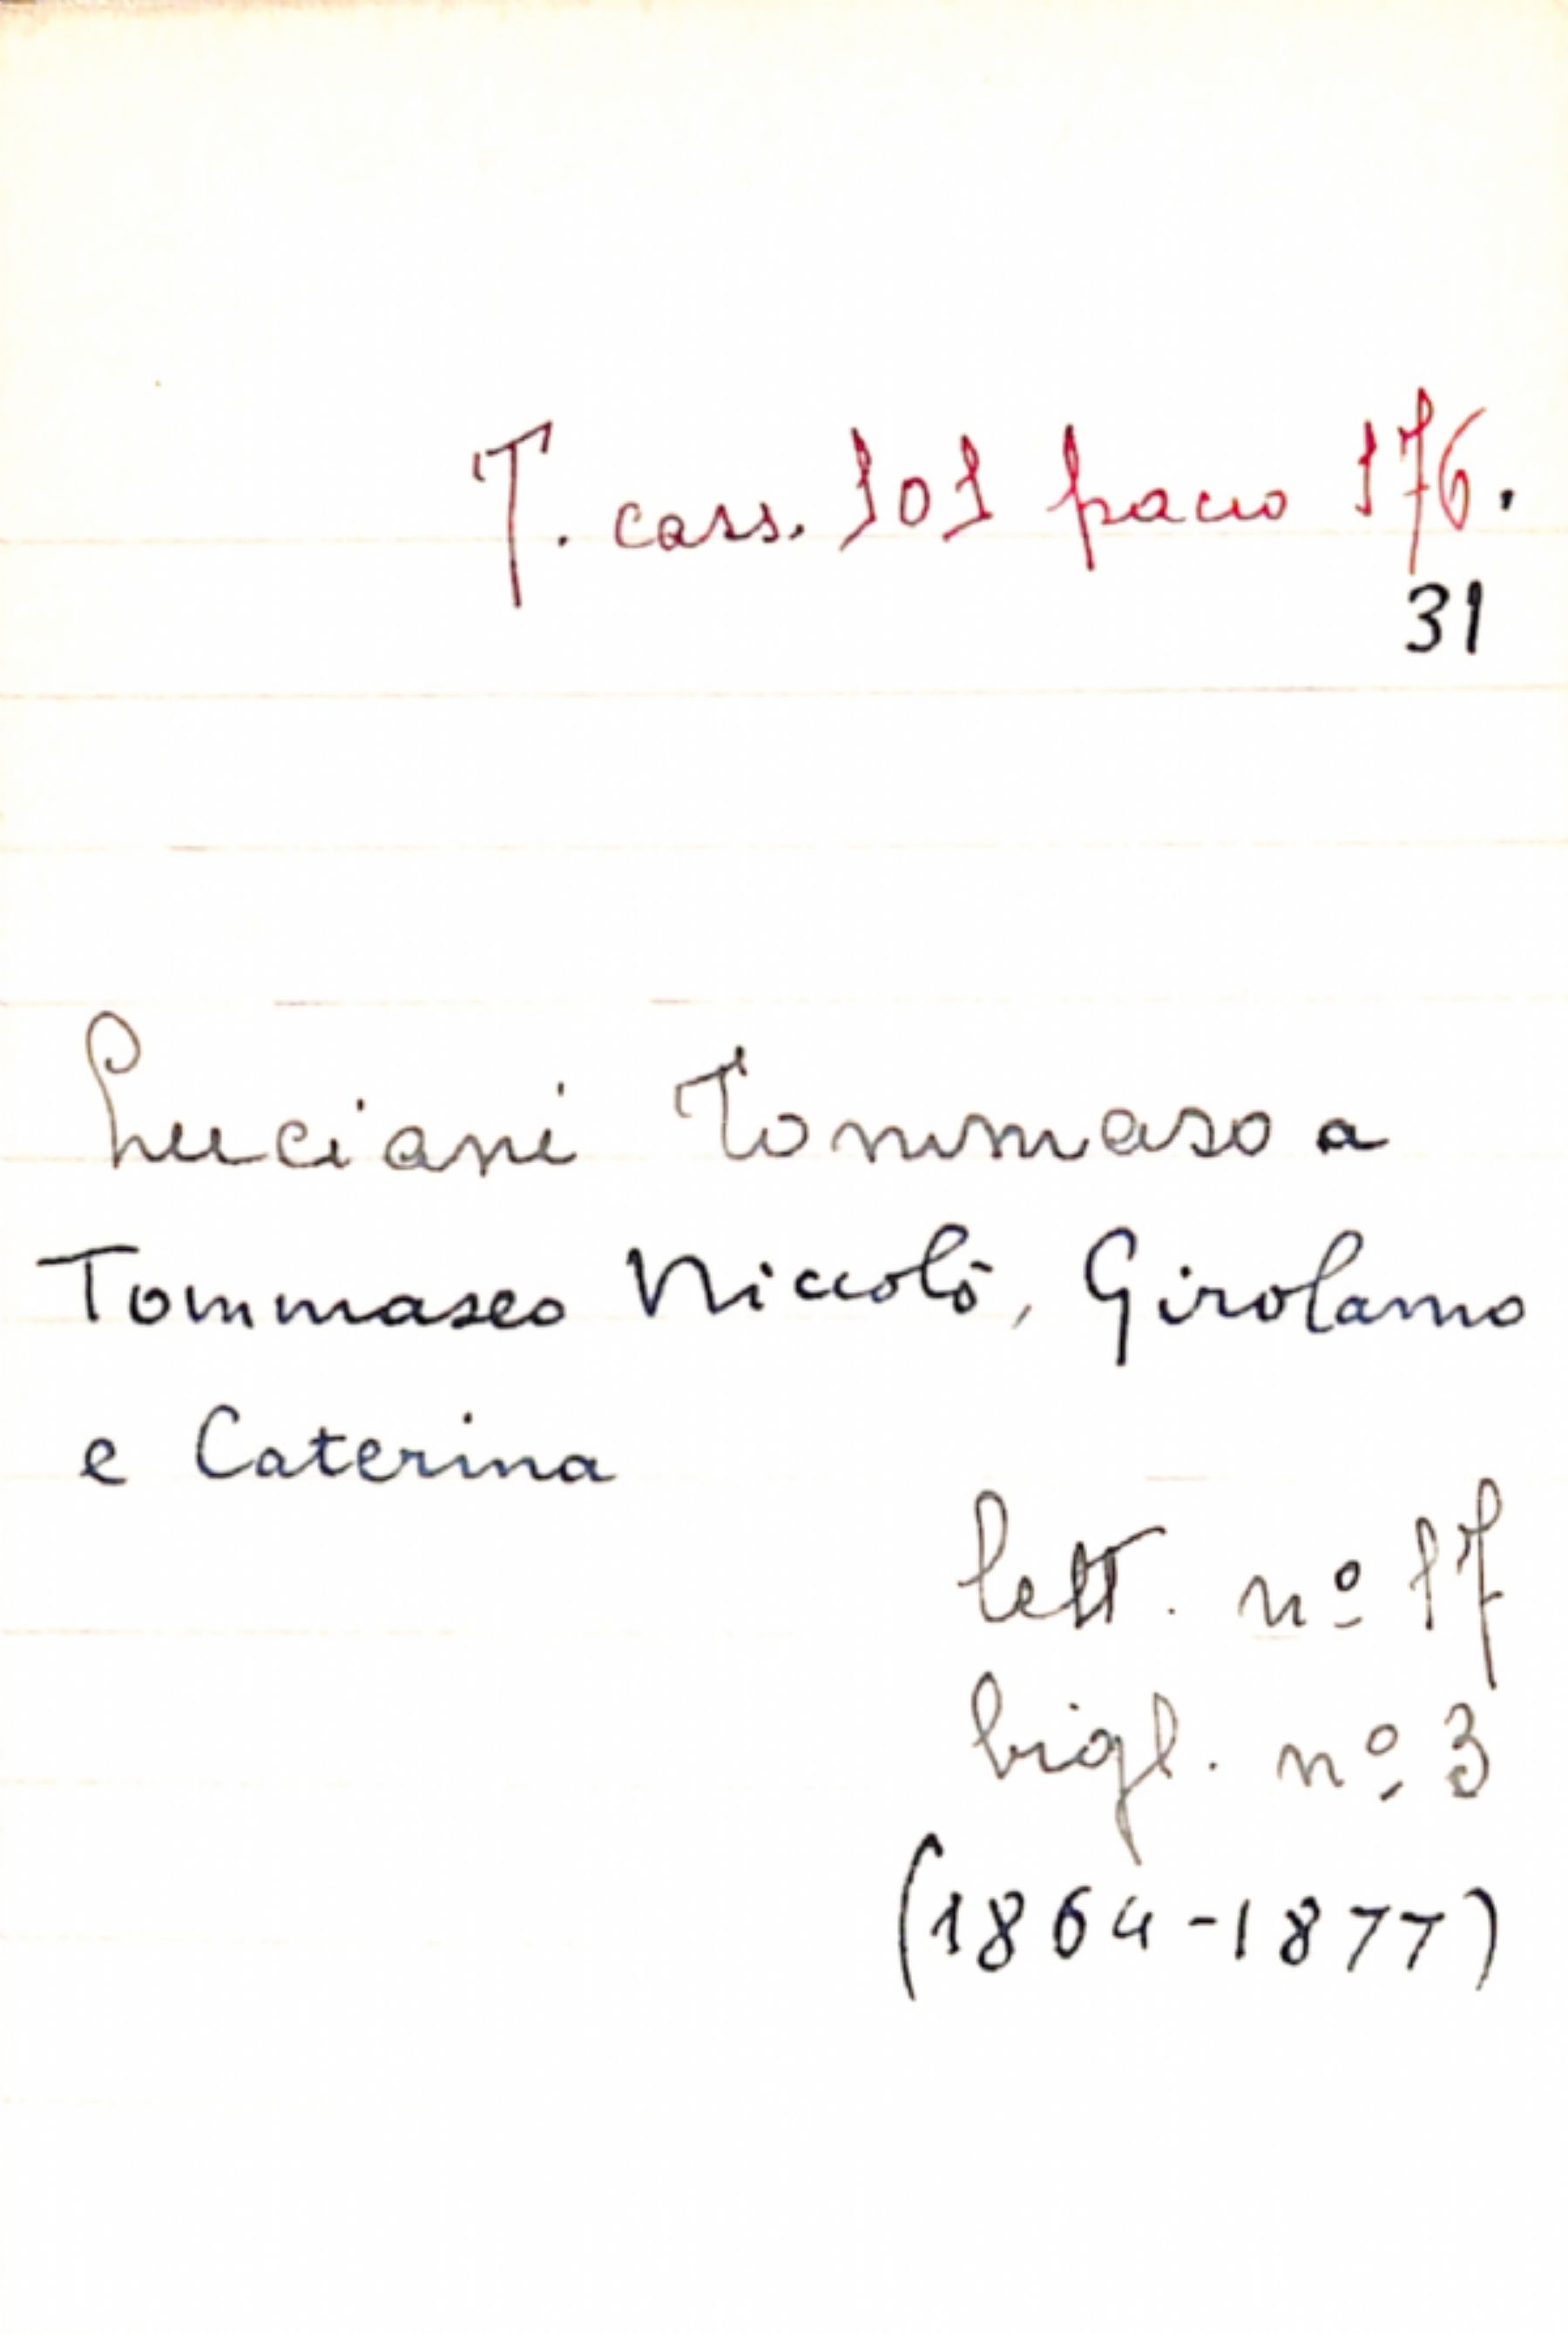 T. cass. 101 pacco 176.
31
Luciani Tommaso a
Tommaseo Niccolò, Girolamo
e Caterina
lett. nº 17
bigl. nº 3
(1864-1877)